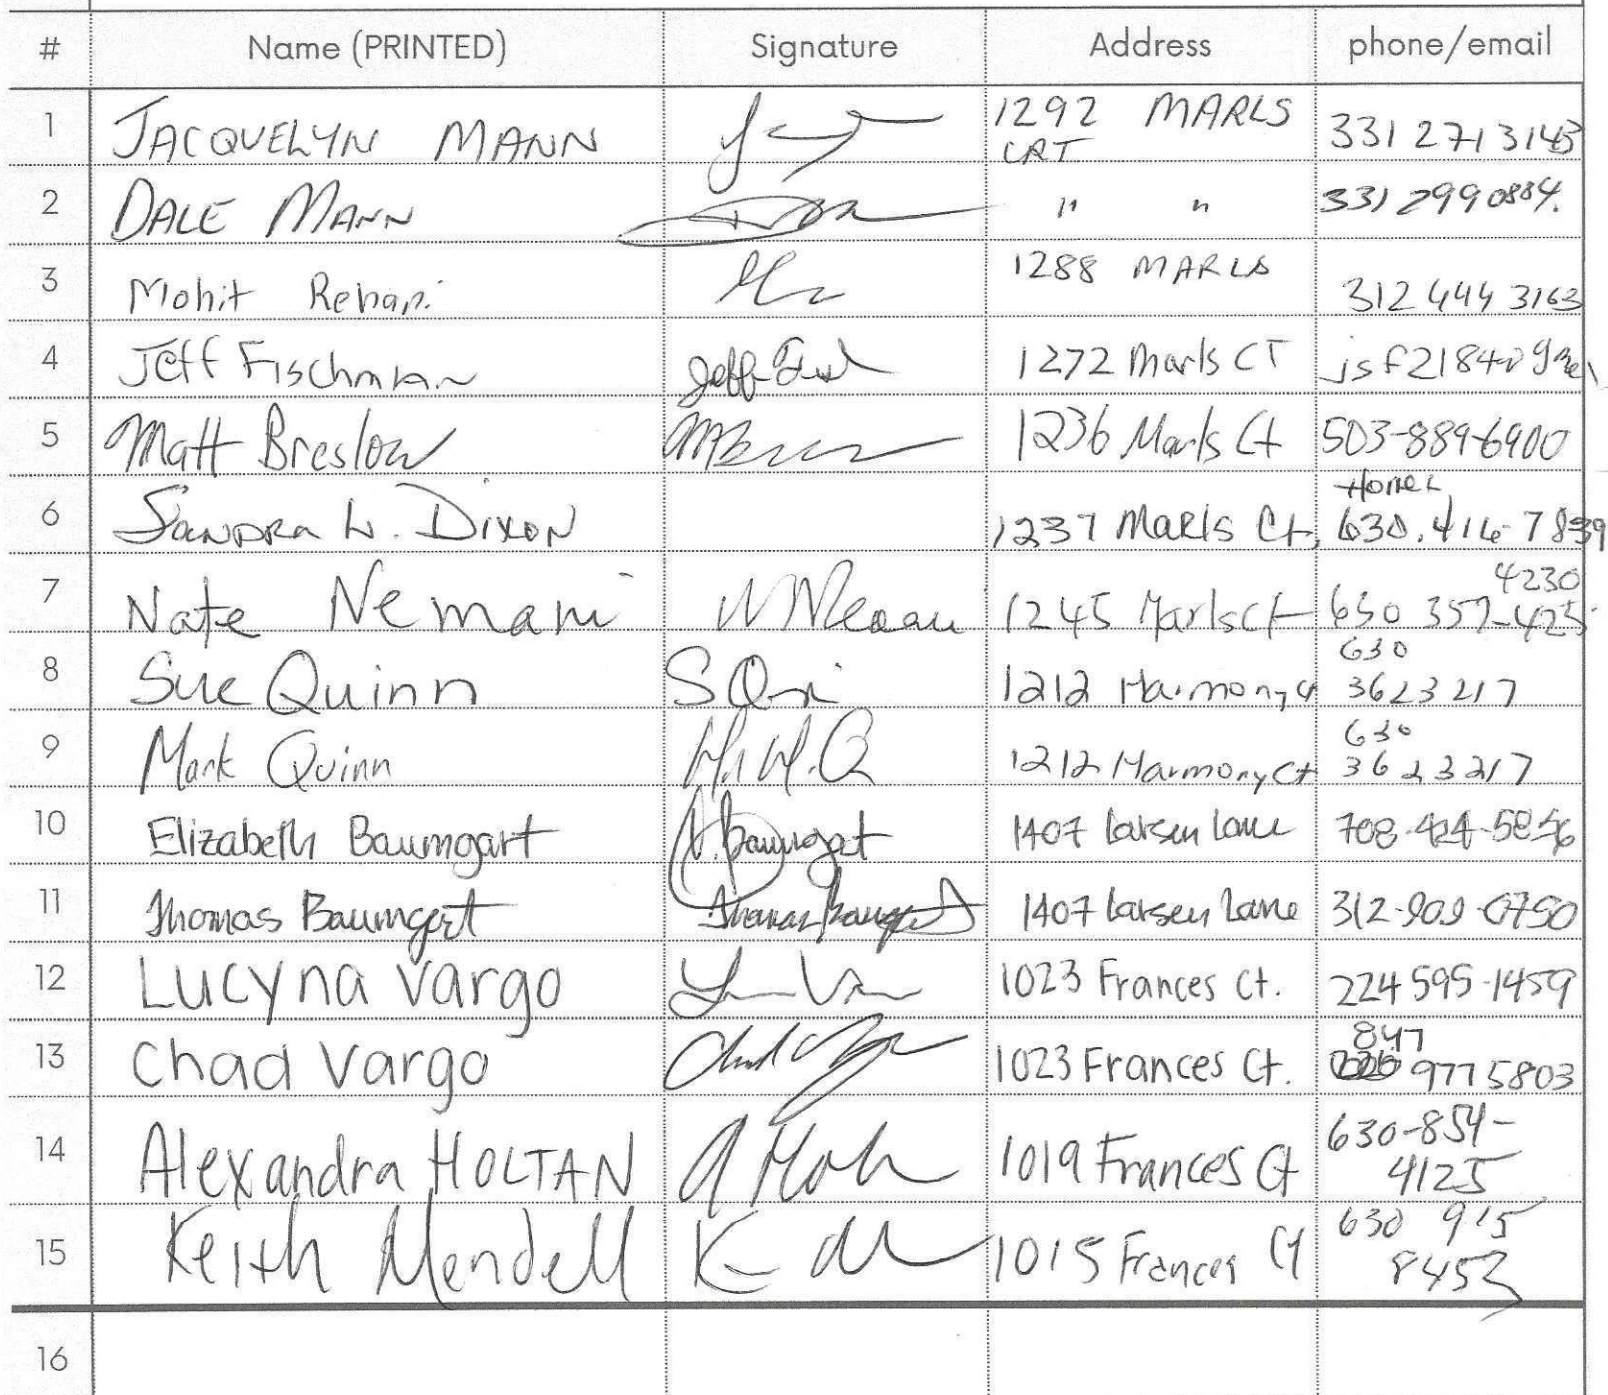 # Name (PRINTED) Signature Address phone/email
1 JACQUELYN MANN 1292 MARLS
CRT 331 271 3143
2 DALE MANN " " 331 299 0884.
3 Mohit Rehani 1288 MARLS 312 444 3163
4 Jeff Fischman 1272 Marls CT
5 Matt Breslow 1236 Marls Ct 503-889-6900
6 SANDRA L. DIXON 1237 Marls Ct, 630.416-7839
7 Nate Nemani 1245 Marls Ct 4230
630 357-425
8 Sue Quinn S Q 1212 Harmony Ct 630
362 3217
9 Mark Quinn 1212 Harmony Ct 630
362 3217
10 Elizabeth Baumgart Baumgart 1407 Larsen Lane 708-424-5856
11 Thomas Baumgart Thomas Baumgart 1407 Larsen Lane 312-909-0750
12 Lucyna Vargo 1023 Frances Ct. 224 595-1459
13 Chad Vargo 1023 Frances Ct. 847
977 5803
14 Alexandra HOLTAN 1019 Frances Ct 630-854-
4125
15 Keith Mendell 1015 Frances Ct 630 915
8453
16